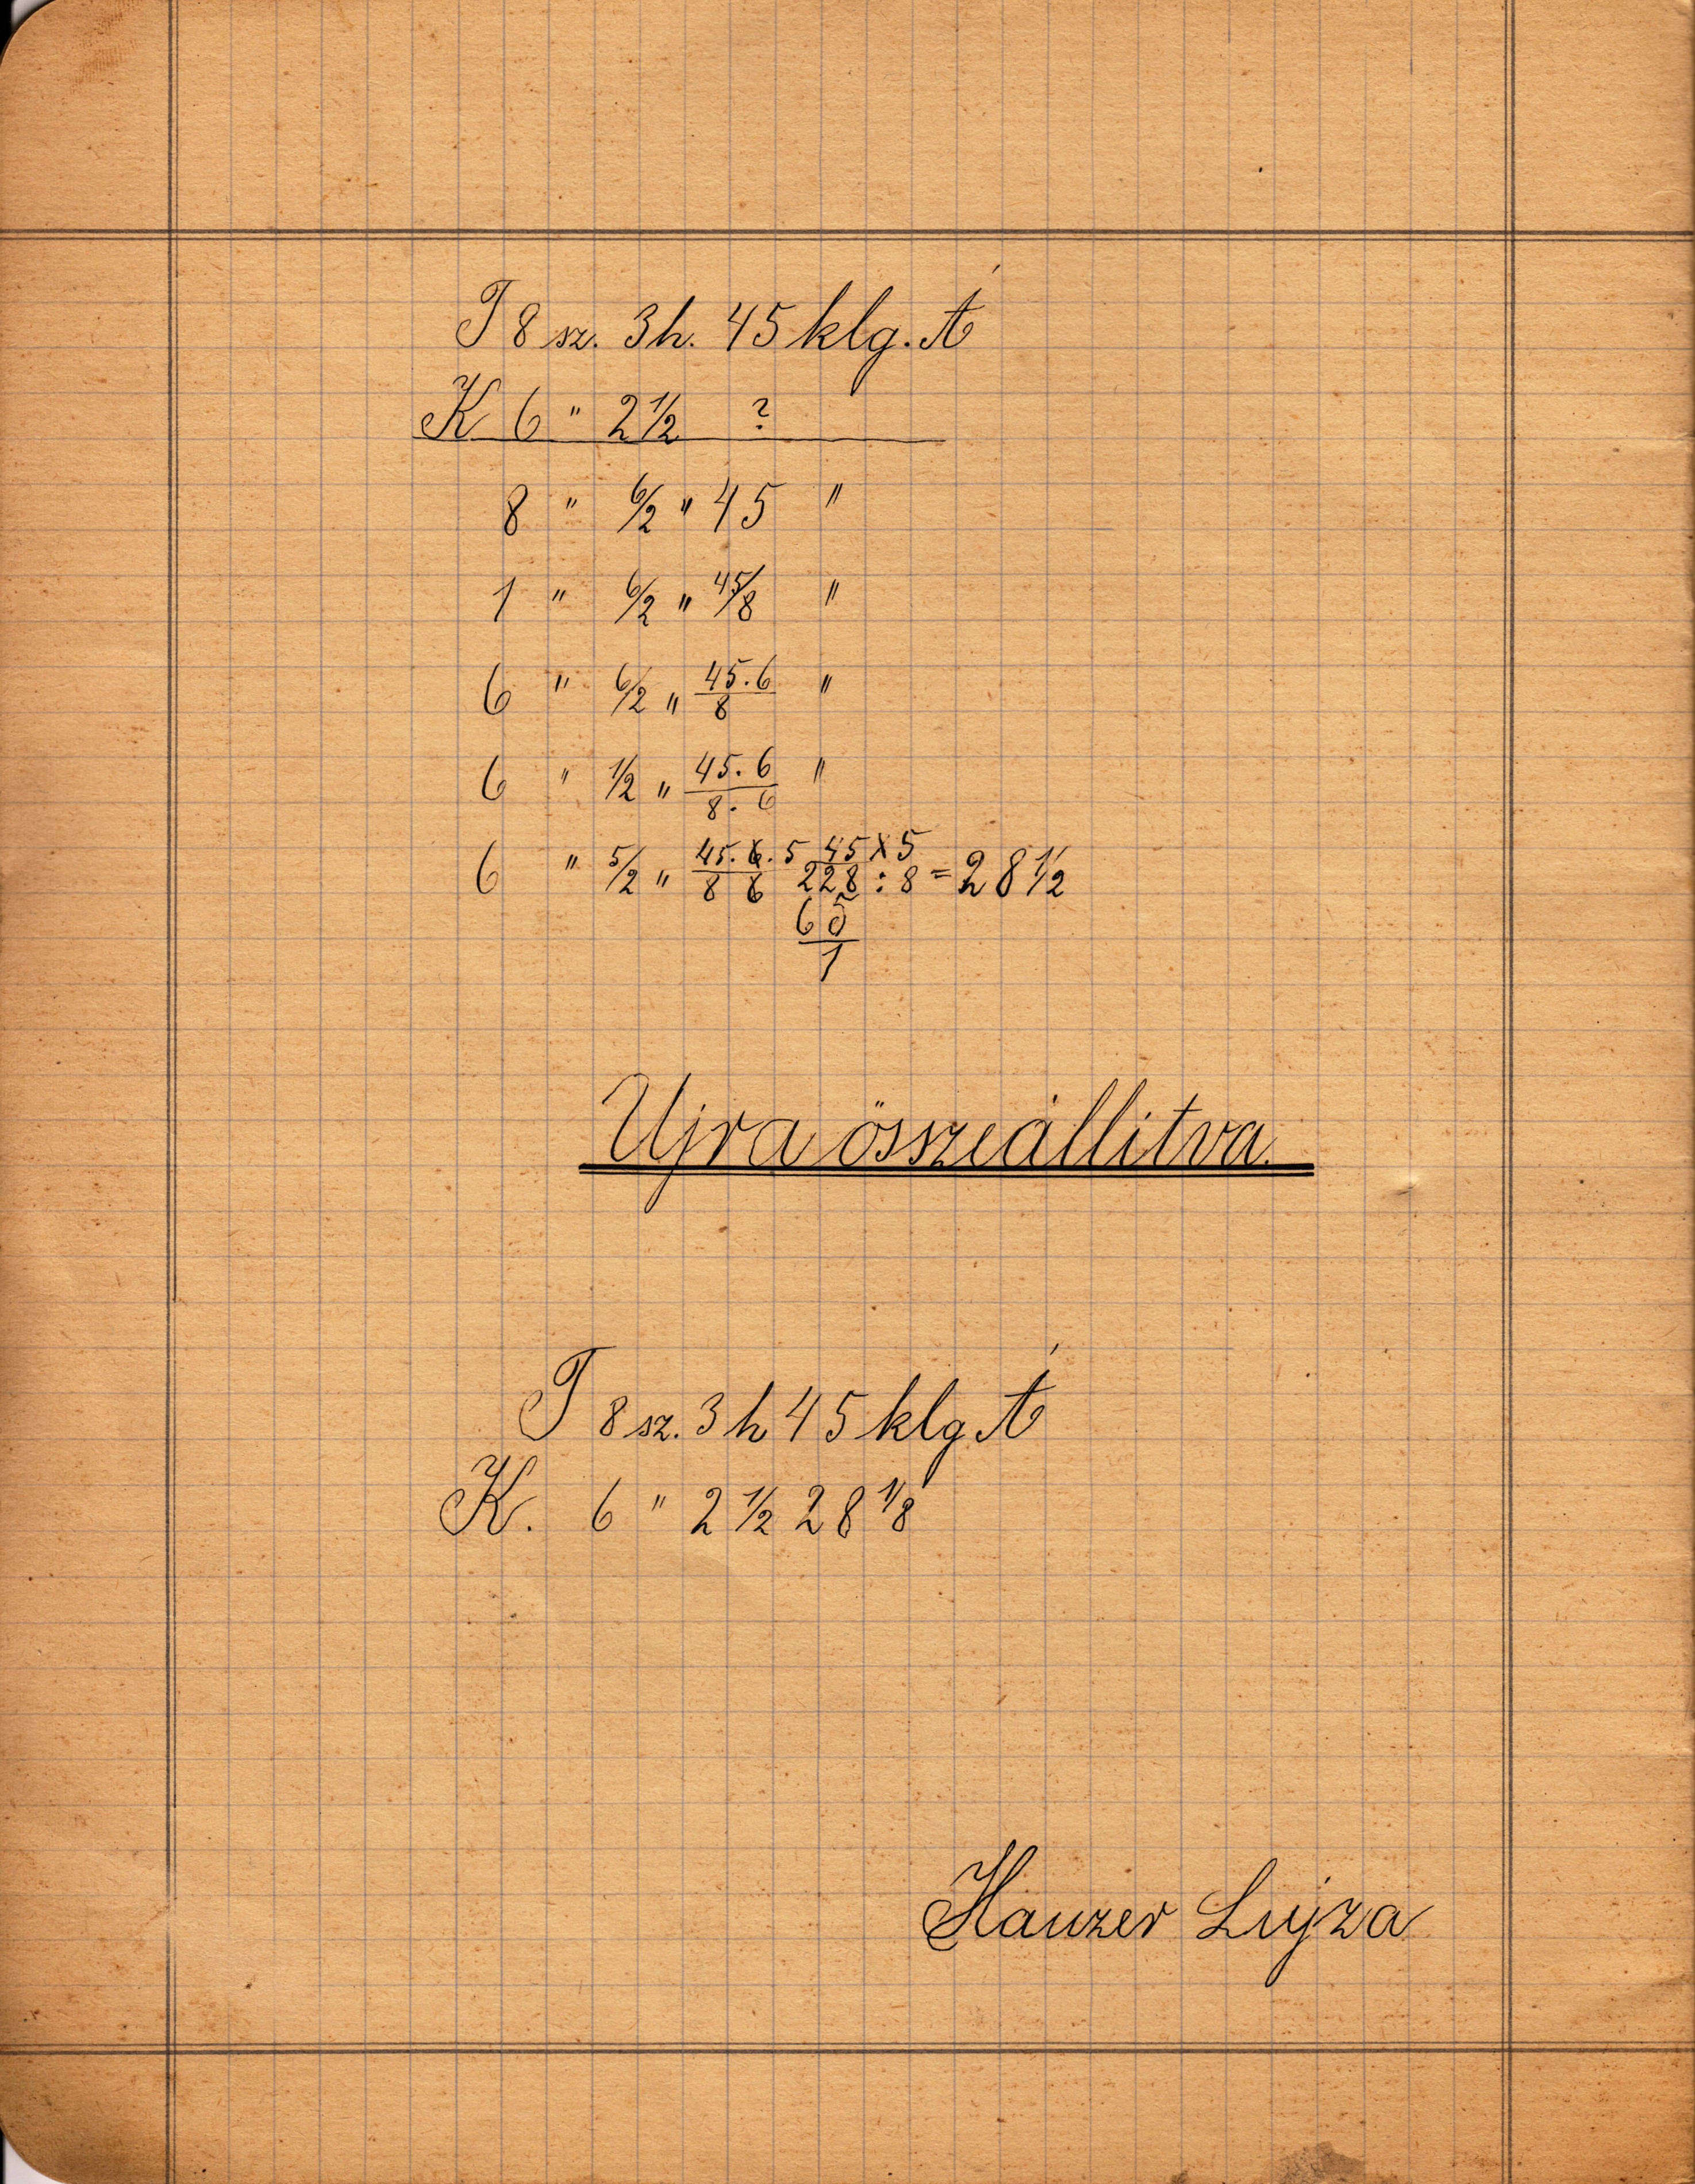 T 8 sz. 3 h. 45 klg. Á
K 6 " 2 1/2 ?
8 " 6/2 " 45 "
1 " 6/2 " 45/8 "
6 " 6/2 " 45.6/8 "
6 " 1/2 " 45.6/8.6 "
6 " 5/2 " 45.6.5/8 6 45x5
228 : 8 = 28 1/2
65
1
Ujra összeállitva.
T 8 sz. 3 h 45 klg. Á
K. 6 " 2 1/2 28 1/8
Hauzer Lujza